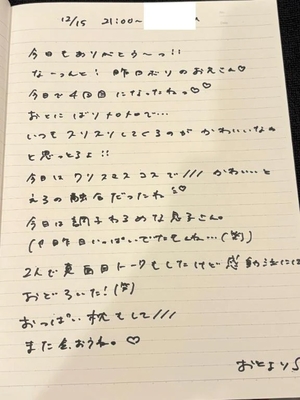 12/15 21:00〜
今日もありがとう〜っ!!
なーつんと! 昨日ぶりのお兄さん♡
今日で4回目になったねっ♡♡
おとにばりメロメロで…
いつもスリスリしてくるのがかわいいなぁ
と思っとるよ!!
今日はクリスマスコスで/// かわいいと
えろの融合だったね♡
今日は調子わるめな息子さん。
(ｻ昨日いっぱいでたもんね…(笑)
2人で真面目トークもしたけど感動法には
おどろいた!(笑)
おっぱい枕もして///
また会おうね。♡
おとより